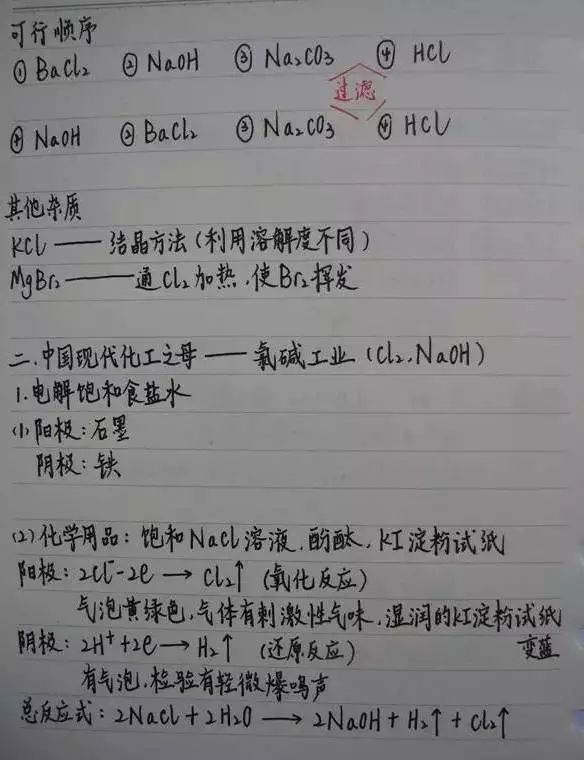 可行顺序
① BaCl₂ ② NaOH ③ Na₂CO₃ ④ HCl
过滤
① NaOH ② BaCl₂ ③ Na₂CO₃ ④ HCl
其他杂质
KCl —— 结晶方法(利用溶解度不同)
MgBr₂ —— 通Cl₂加热,使Br₂挥发
二.中国现代化工之母 —— 氯碱工业(Cl₂,NaOH)
1.电解饱和食盐水
(1)阳极:石墨
阴极:铁
(2)化学用品:饱和NaCl溶液.酚酞.KI淀粉试纸
阳极:2Cl⁻-2e → Cl₂↑ (氧化反应)
气泡黄绿色,气体有刺激性气味,湿润的KI淀粉试纸
变蓝
阴极:2H⁺+2e → H₂↑ (还原反应)
有气泡,检验有轻微爆鸣声
总反应式:2NaCl+2H₂O → 2NaOH+H₂↑+Cl₂↑